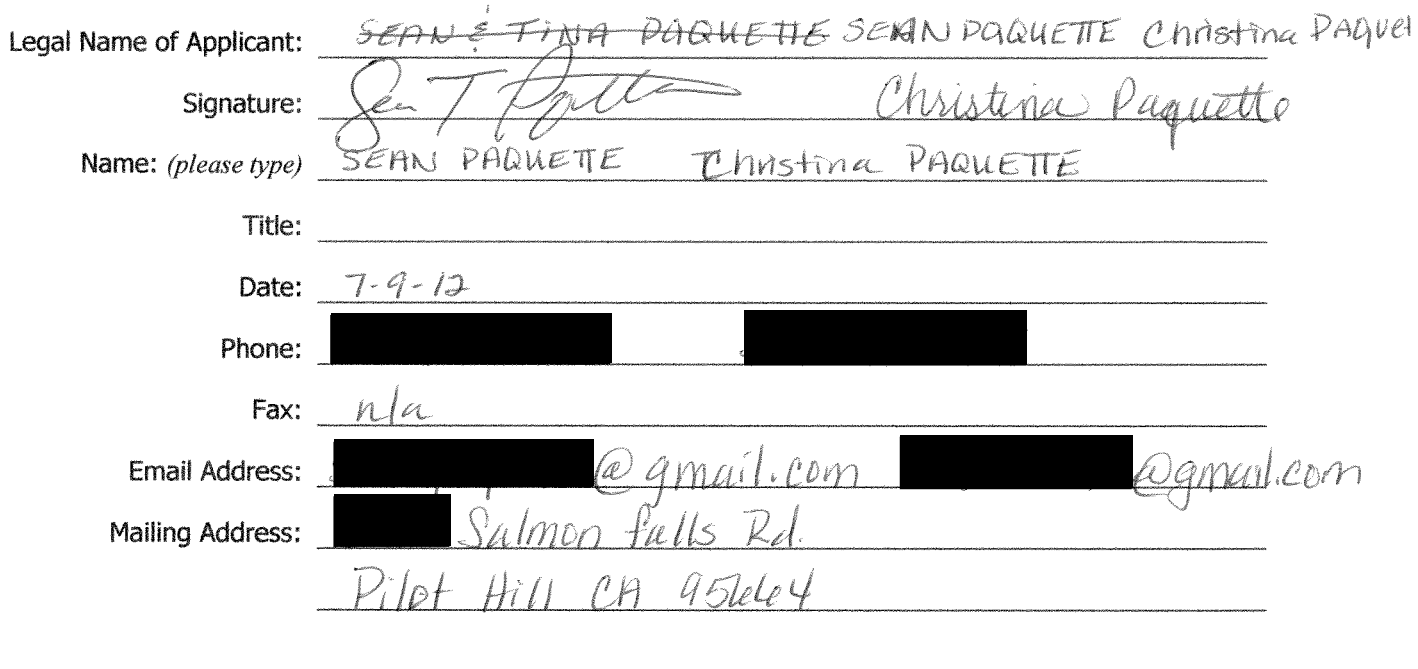 Legal Name of Applicant: SEAN & TINA PAQUETTE SEAN PAQUETTE Christina PAQUET
Signature: Sean T Paquette Christina Paquette
Name: (please type) SEAN PAQUETTE Christina PAQUETTE
Title:
Date: 7-9-12
Phone:
Fax: n/a
Email Address: @gmail.com @gmail.com
Mailing Address: Salmon falls Rd.
Pilot Hill CA 95664